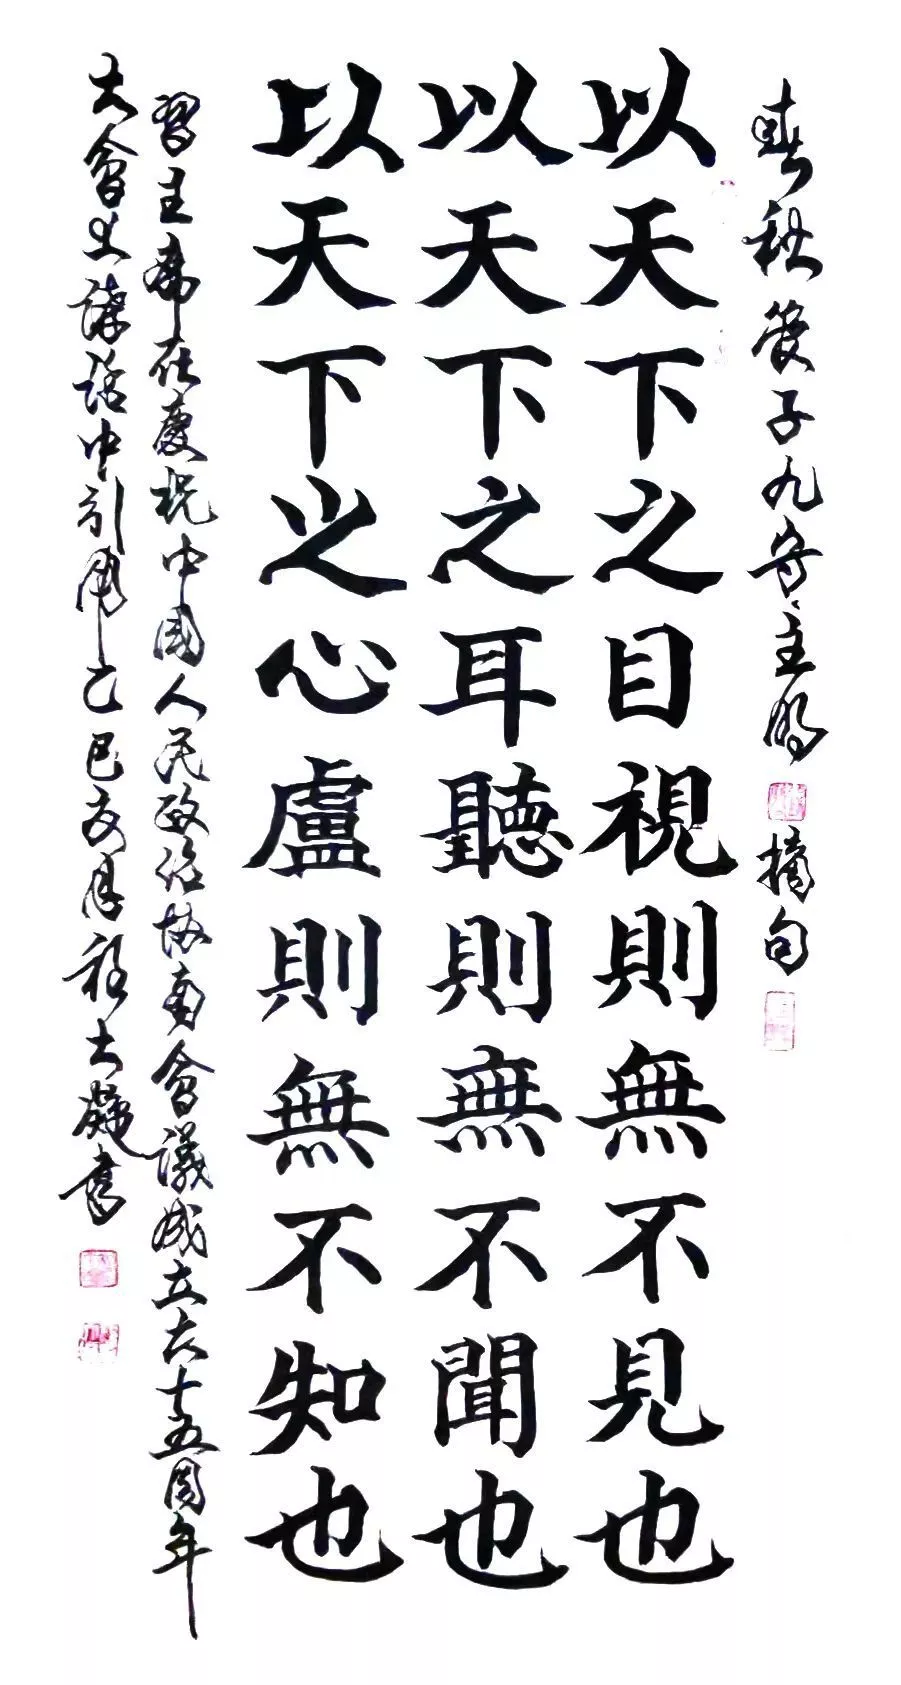 春秋管子九守主明 摘句
以天下之目視則無不見也
以天下之耳聽則無不聞也
以天下之心盧則無不知也
習主席在慶祝中國人民政治協商會議成立六十五周年
大會上講話中引用 巳 月 書